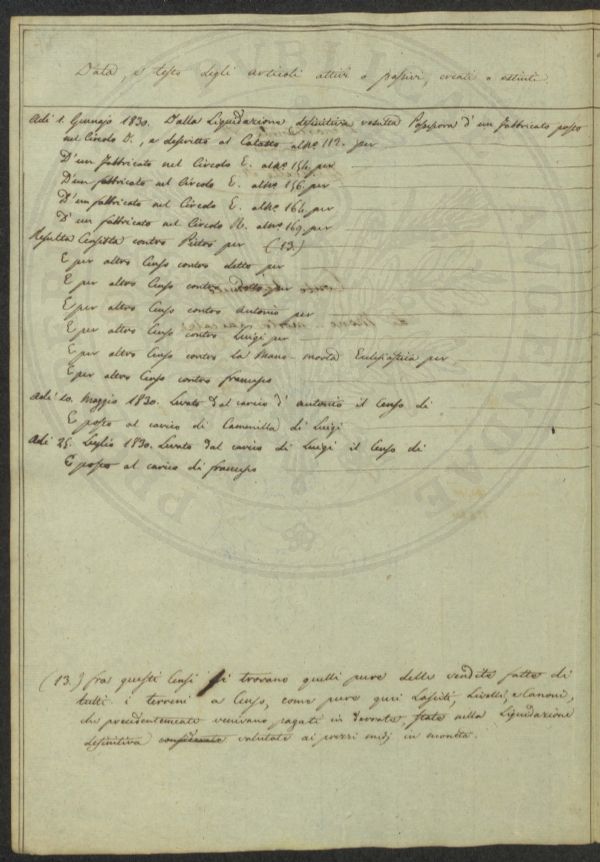 Data, e testo degli articoli attivi o passivi, creati o estinti
Adi 1. Gennajo 1830. Dalla Liquidazione definitiva resulta Posseßora d'un fabbricato posto
nel Circolo D., e descritto al Catasto al n.º 112. per
D'un fabbricato nel Circolo E. al n.º 154 per
D'un fabbricato nel Circolo E. al n.º 156 per
D'un fabbricato nel Circolo E. al n.º 164 per
D'un fabbricato nel Circolo R. al n.º 169 per
Resulta Censista contro Pietro per (13.)
E per altro Censo contro detto per
E per altro Censo contro detto per
E per altro Censo contro Antonio per
E per altro Censo contro Luigi per
E per altro Censo contro la Mano-morta Eccleſiastica per
E per altro Censo contro francesco
Adi 10. Maggio 1830. Levato dal carico d'antonio il Censo di
E posto al carico di Cammilla di Luigi
Adi 25. Luglio 1830. Levato dal carico di Luigi il Censo di
E posto al carico di francesco
(13.) fra questi Censi si trovano quelli pure delle vendite fatte di
tutti i terreni a Censo, come pure quei Lasciti, Livelli, e Canoni,
che precedentemente venivano pagati in derrate, state nella Liquidazione
definitiva valutate ai prezzi medj in moneta.